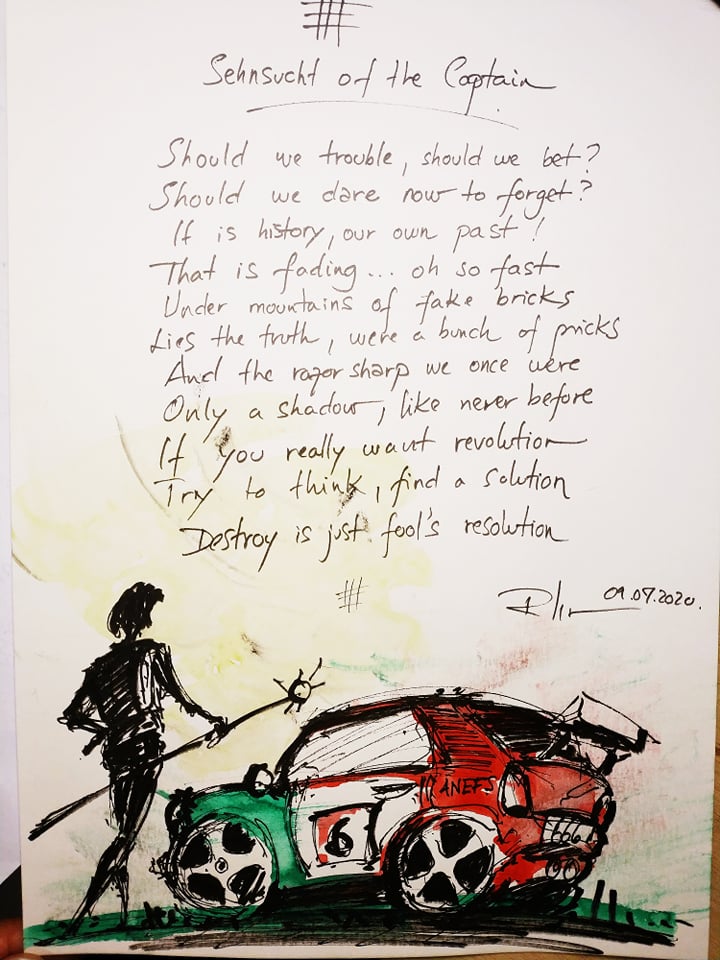 Sehnsucht of the Captain
Should we trouble, should we bet?
Should we dare now to forget?
If is history, our own past!
That is fading... oh so fast
Under mountains of fake bricks
Lies the truth, were a bunch of pricks
And the razor sharp we once were
Only a shadow, like never before
If you really want revolution
Try to think, find a solution
Destroy is just fool's resolution
09.07.2020.
ANEFS
6
666